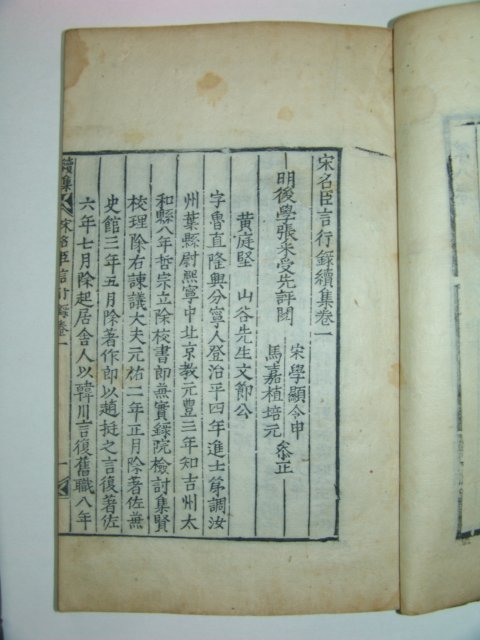 宋名臣言行錄續集卷一
明後學張采受先評閱
宋學顯令申
馬嘉植培元
叅正
黃庭堅 山谷先生文節公
字魯直隆興分寧人登治平四年進士第調汝
州葉縣尉熙寧中北京教元豐三年知吉州太
和縣八年哲宗立除校書郎兼實錄院檢討集賢
校理除右諫議大夫元祐二年正月除著佐兼
史館三年五月除著作郎以趙挺之言復著佐
六年七月除起居舍人以韓川言復舊職八年
續集 宋名臣言行錄卷一 一